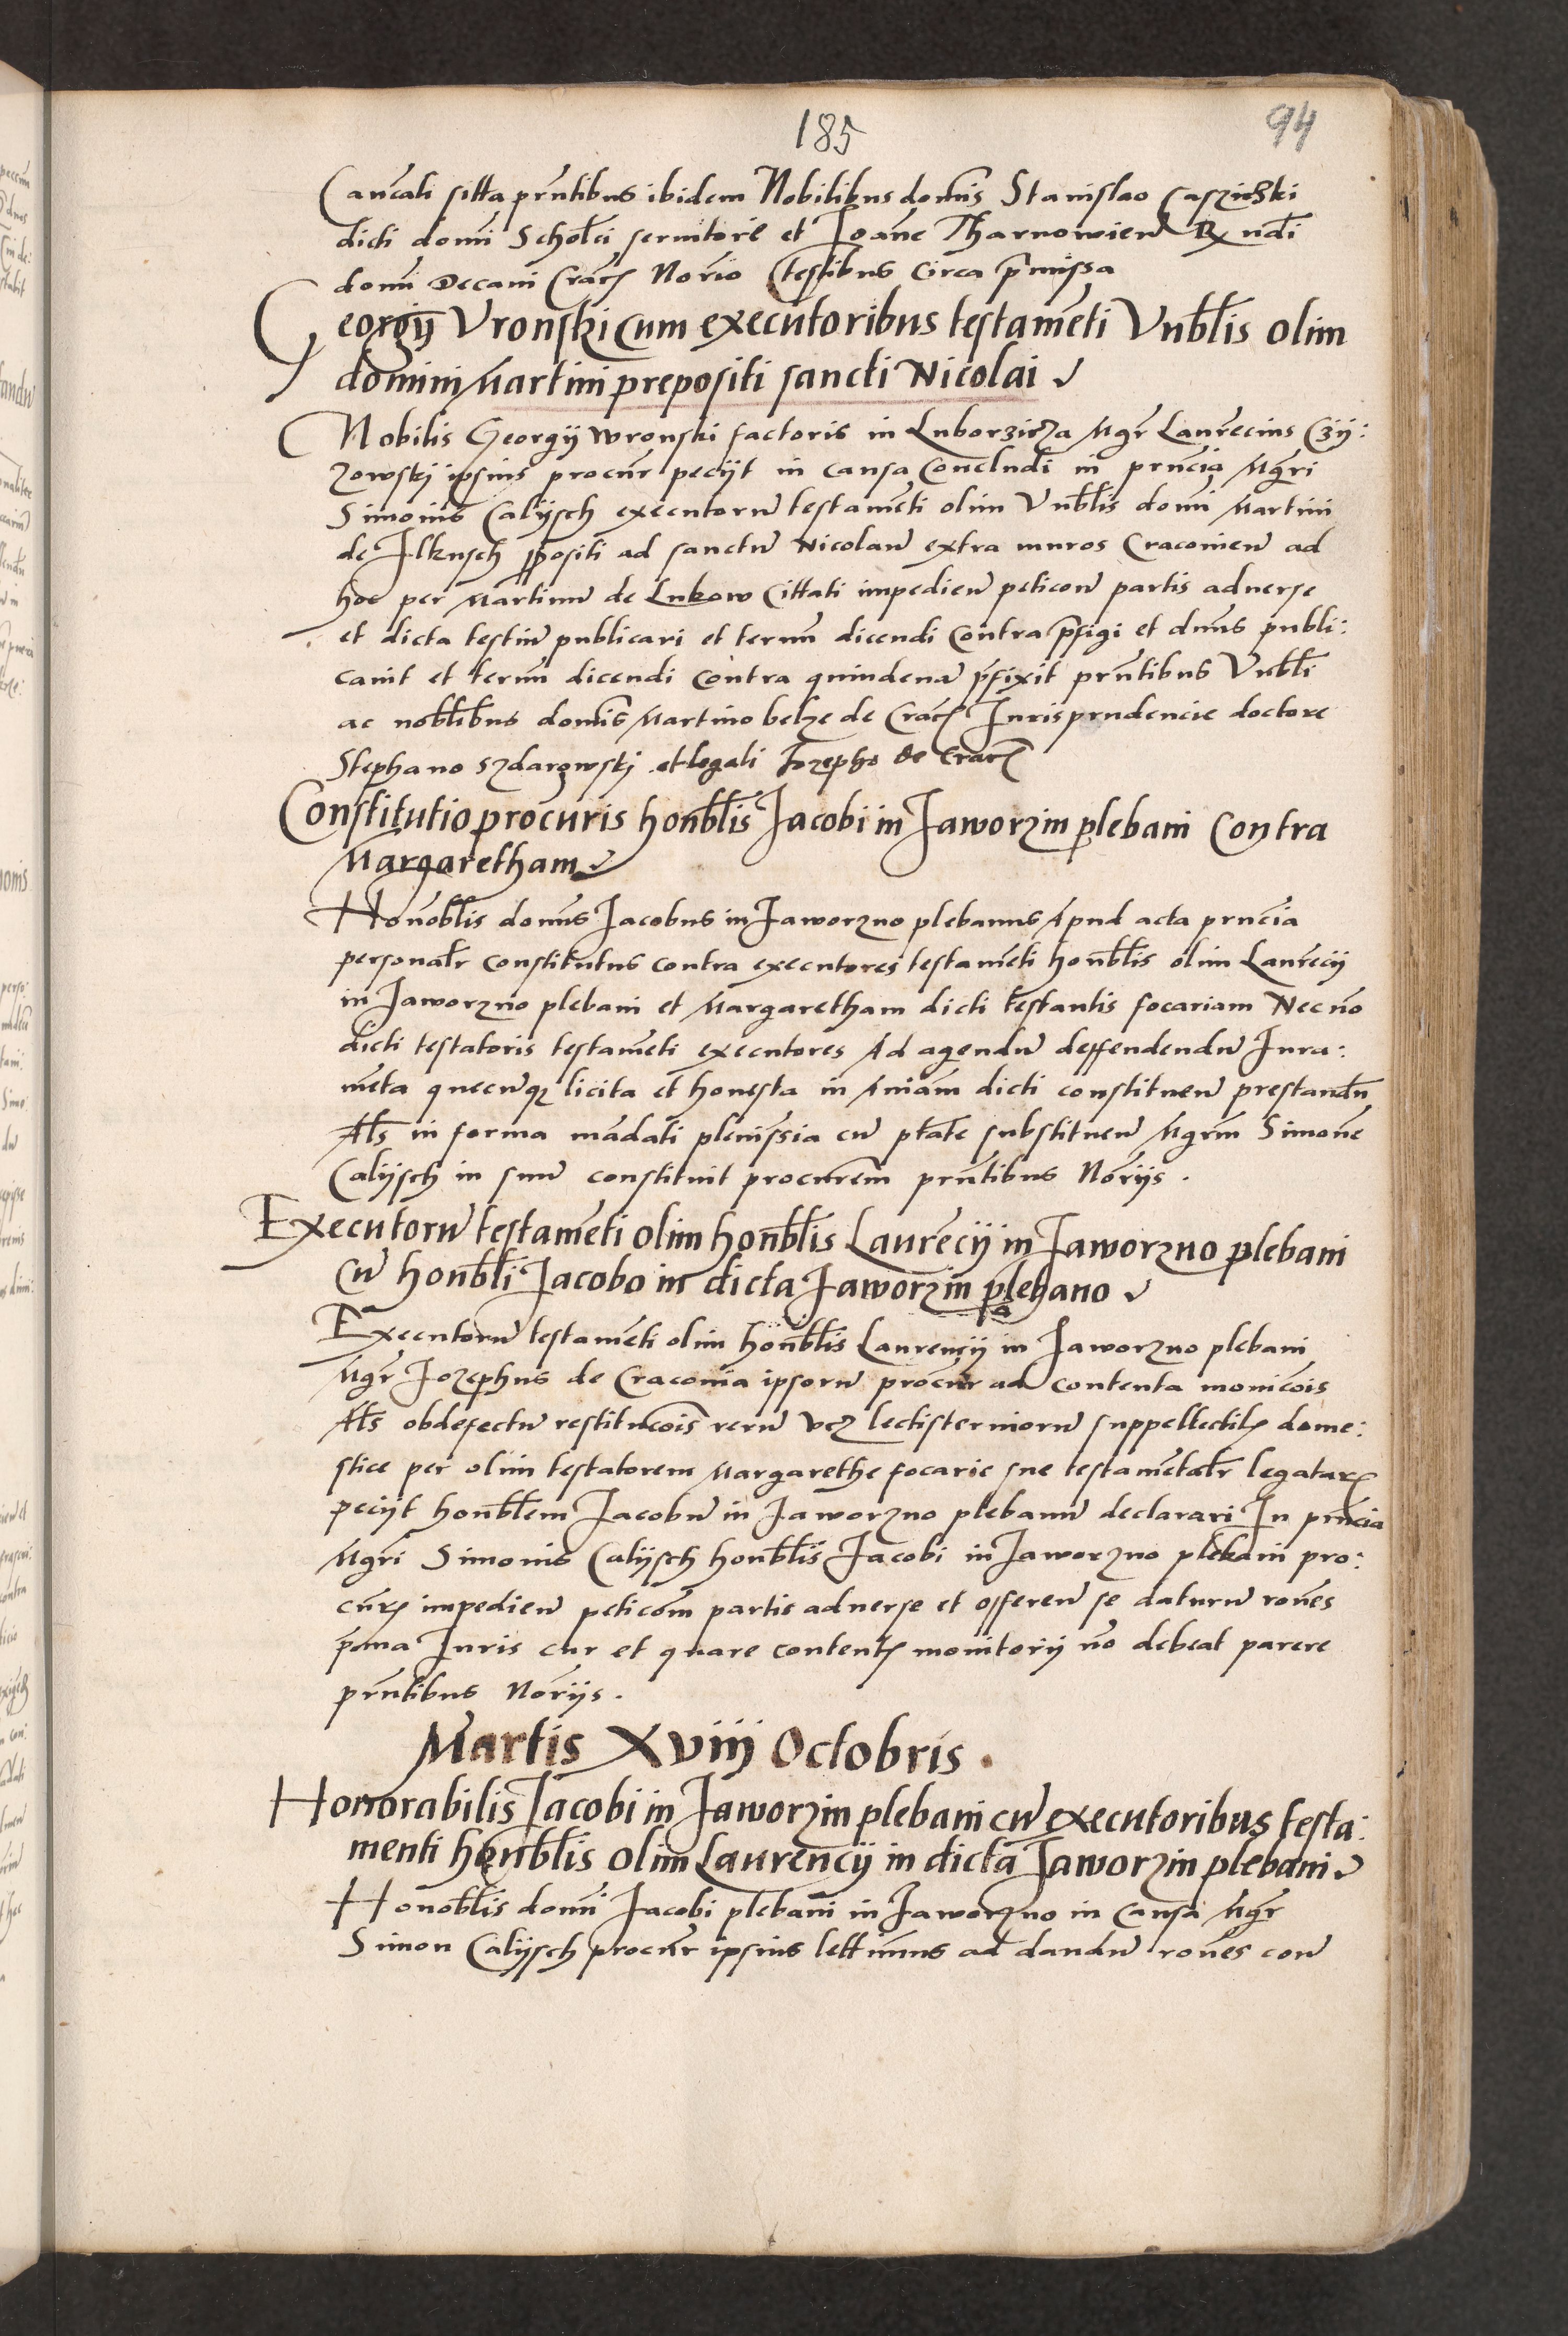 185
94
Cancali sitta pr̄ntibus ibidem Nobilibus domīs Stanislao
dicti domī Scholci seruitorē et Joāne Tharnowień Rx ndi
domī Decani Crac̄ Norio testibus circa p̄missa
Georgÿ Vronski cum executoribus testamēti Vnb̄lis olim
domini Martini prepositi sancti Nicolai
Nobilis Georgÿ Wronski factoris in Luborzicza Mgr̄ Laurēcius Czÿ:
zowskj ipsius procūr peciÿt in causa Concludi in prn̄cia Mgr̄i
Simonis Calÿsch executorū testamēti olim Vnb̄lis domī Martini
de Ilkusch p̄positi ad sanctū Nicolaū extra muros Cracouień ad
hoc per Martinū de Lukow Cittati impedień peticoń partis aduerse
et dicta testiū publicari et termī dicendi Contra p̄figi et dnūs publi:
cauit et termī dicendi Contra quindenā p̄fixit prn̄tibus Vnb̄li
ac nob̄libus domīs Martino belze de Crac̄ Jurisprudencie doctore
Stephano Szdarowskj et legali Jozepho de Crac̄
Constitutio procuris honb̄lis Jacobi in Jaworzin plebani Contra
Margaretham
Honob̄lis domūs Jacobus in Jaworzno plebanus Apud acta prn̄cia
personalr̄ constitutus contra executores testamēti honb̄lis olim Laurēcÿ
in Jaworzno plebani et Margaretham dicti testantis focariam Necnō
dicti testatoris testamēti executores Ad agendū deffendendū Jura:
mēta quecūqꝫ licita et honesta in Aniām dicti constitueń prestandū
Al̄s in forma mādati pleniss̄ia cū ptāte substitueń Mgrm̄ Simonē
Calÿsch in suū constituit procurēm prn̄tibus Norÿs .
Executorū testamēti olim honb̄lis Laurēcÿ in Jaworzno plebani
Cū honb̄li Jacobo in dicta Jaworzin plebano
Executorū testamēti olim honb̄lis Laurencÿ in Jaworzno plebani
Mgr̄ Jozephus de Craconia ipsorū procūr ad contenta monicōis
Al̄s ob defectū restitucōis rerū vcꝫ lectisterniorū suppellectil̄ dome:
stice per olim testatorem Margarethe focarie sue testamētalr̄ legatar̄
peciÿt honb̄lem Jacobū in Jaworzno plebanū declarari In prn̄cia
Mgr̄i Simonis Calÿsch honb̄lis Jacobi in Jaworzno plebani pro:
cūr̄ impedień peticōm partis aduerse et offereń se daturū rōnes
p̄ma Juris cur et quare content̄ monitorÿ nō debeat parere
prn̄tibus Norÿs .
Martis XViij Octobris .
Honorabilis Jacobi in Jaworzin plebani cū executoribus testa:
menti honb̄lis olim Laurencÿ in dicta Jaworzin plebani
Honob̄lis domī Jacobi plebani in Jaworzno in Causa Mgr̄
Simon Calÿsch procūr ipsius lettimus ad dandū rōnes coń